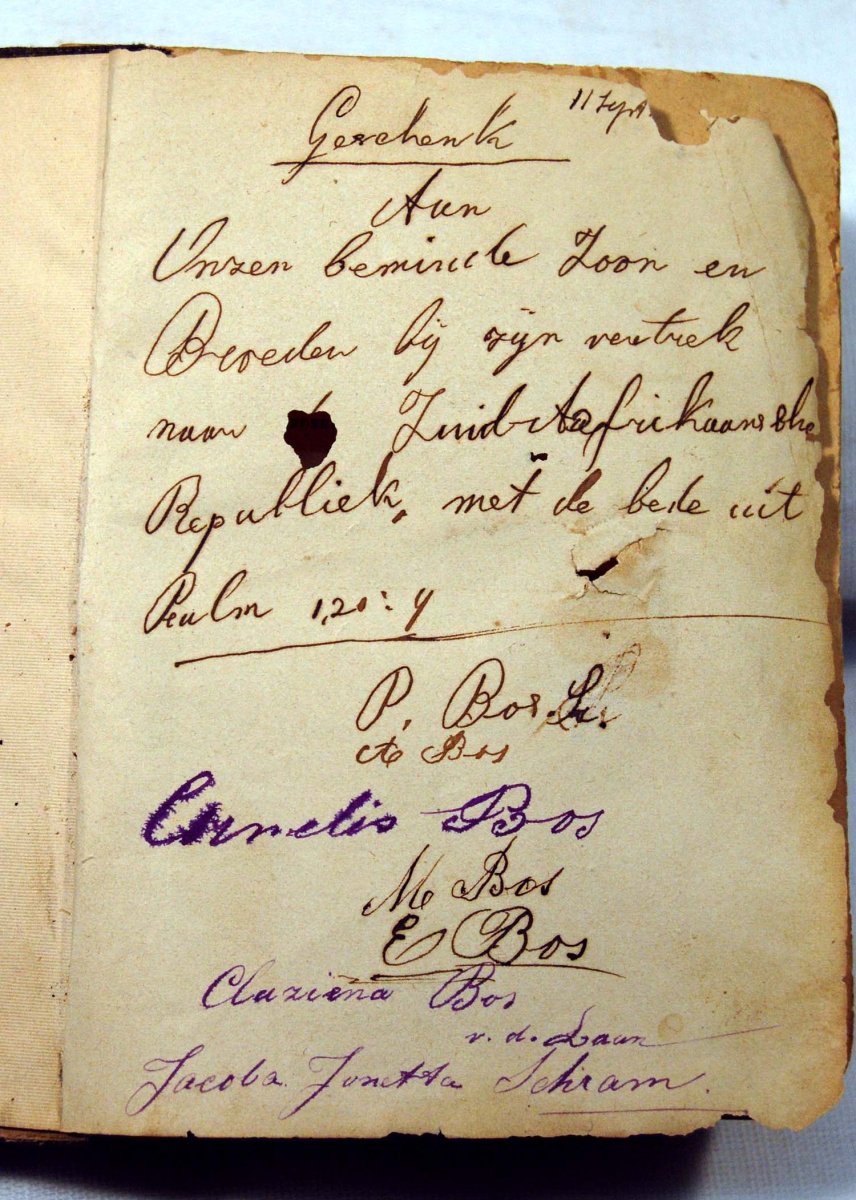 11 Sept.
Geschenk
Aan
Onzen beminde Zoon en
Broeder bij zijn vertrek
naar Zuid-Afrikaansche
Republiek, met de bede uit
Psalm
P. Bos Sr.
A Bos
Cornelis Bos
M Bos
E Bos
Claziena Bos
v. d. Laan
Jacoba Jonetta Schram.